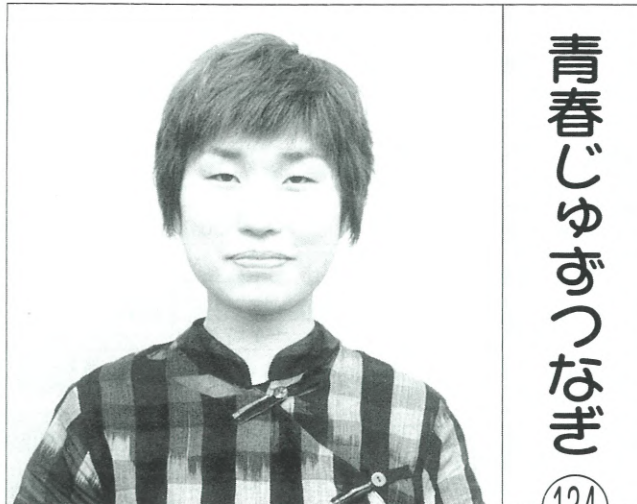 青春じゅずつなぎ
124